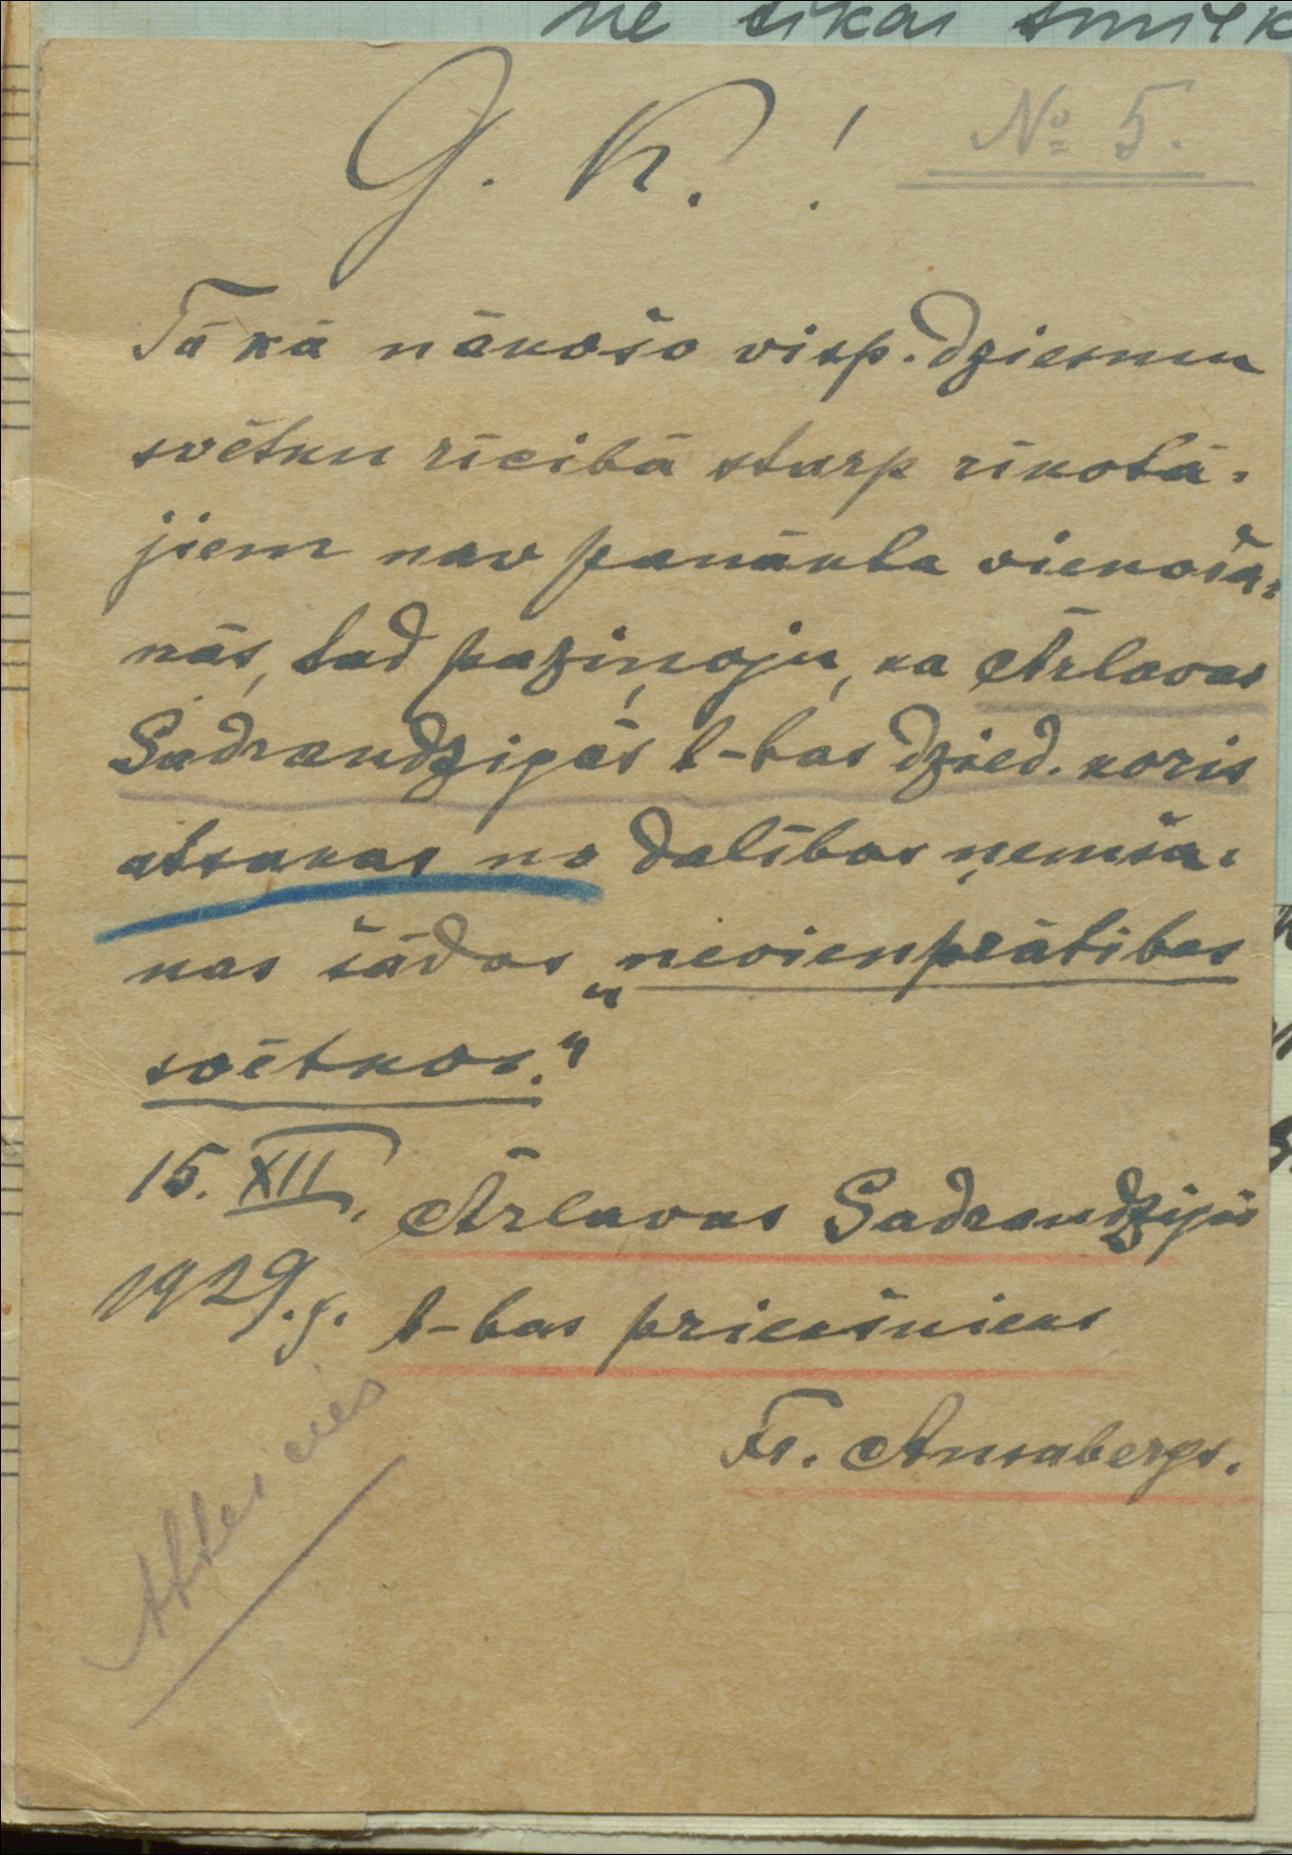 ne tikai
G. K.!
№ 5.
Tā kā nākošo visp. dziesmu
svētku rīcībā starp rīkotā-
jiem nav panākta vienoša-
nās, tad paziņoju, ka Ārlavas
Sadraudzīgās b-bas dzied. koris
atsakas no dalības ņemša-
nas šādos „nevienprātības
svētkos."
15. XII.
1929. g.
Ārlavas Sadraudzīgās
b-bas priekšnieks
Fr. Ansabergs.
Atteicies